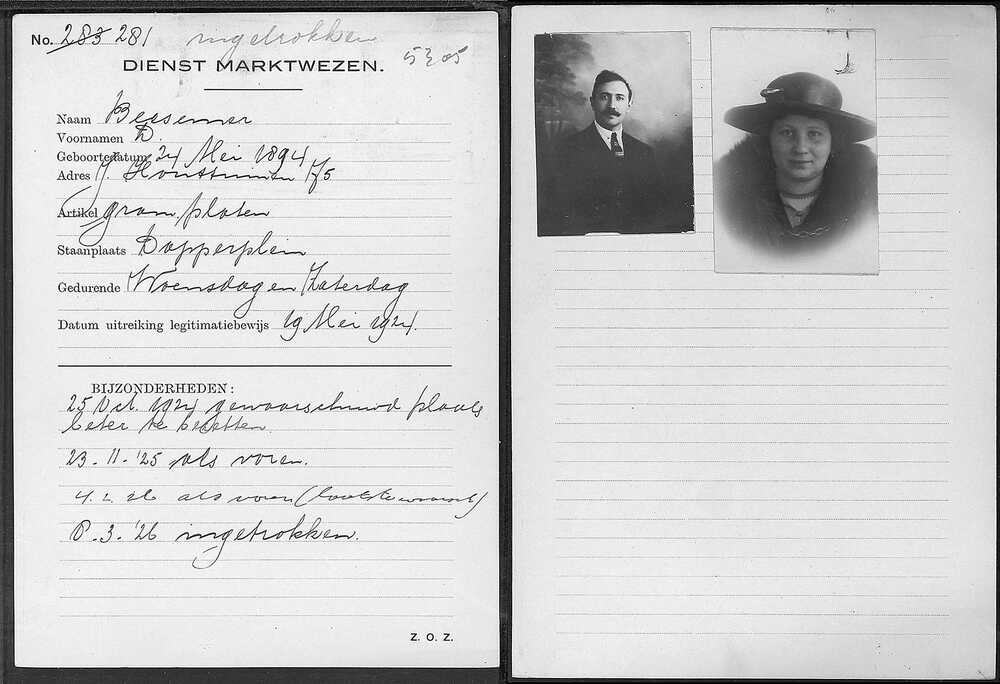 No. 283 281 ingetrokken
DIENST MARKTWEZEN.
Naam Beesemer
Voornamen D.
Geboortedatum 24 Mei 1894
Adres J. Houttuinen 75
Artikel gram. platen
Staanplaats Dapperplein
Gedurende Woensdag en Zaterdag
Datum uitreiking legitimatiebewijs 19 Mei 1924.
BIJZONDERHEDEN:
25 Oct. 1924 gewaarschuwd plaats
beter te bezetten.
23-11-'25 als voren.
als voren (laatste
8.3.'26 ingetrokken.
Z. O. Z.